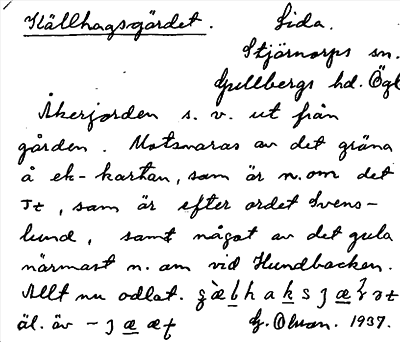 Källhagsgärdet. Lida.
Stjärnorps sn.
Gullbergs hd. Ögl
Åkerjorden s. v. ut från
gården. Motsvaras av det gröna
å ek-kartan, som är n. om det
st, som är efter ordet Svens-
lund, samt något av det gula
närmast n. om vid Hundbacken.
Allt nu odlat.
äl. äv - 1937.